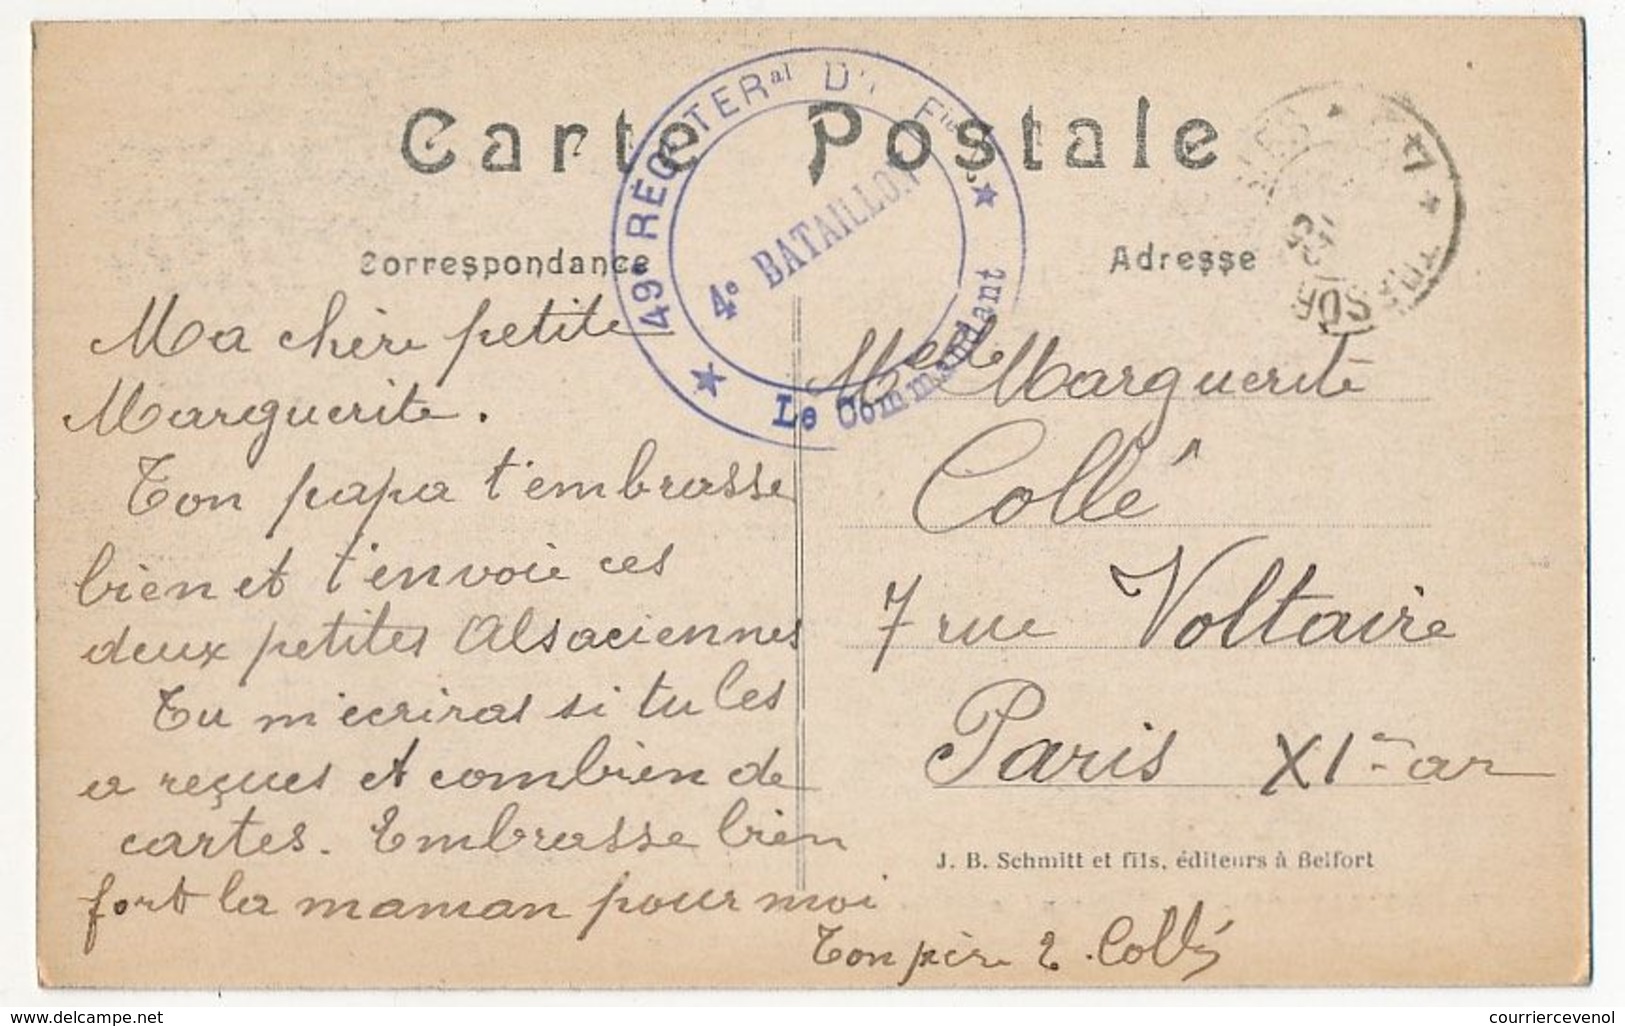 Carte Postale
49e REGt TERal D'INFie
4e BATAILLON
Le Commandant
Correspondance
Adresse
Ma chère petite
Marguerite.
Ton papa t'embrasse
bien et t'envoie ces
deux petites Alsaciennes
Tu m'écriras si tu les
a reçues et combien de
cartes. Embrasse bien
fort la maman pour moi
Ton père E. Collé
Melle Marguerite
Collé
7 rue Voltaire
Paris XIe ar
J. B. Schmitt et fils, éditeurs à Belfort
www.delcampe.net
courriercevenol